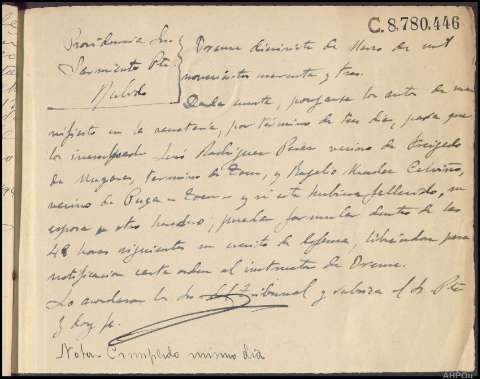 C.8.780.446
Providencia Sres
Sarmiento Pte
Orense diecisiete de Marzo de mil
novecientos cuarenta y tres.
Dada cuenta, pongase los autos de ma
nifiesto en la secretaria, por término de tres dias, para que
los inculpados Luis Rodriguez Perez vecino de Freigedo
de Mugares, término de Toen, y Rogelio Mendez Cerviño,
vecino de Puga - Toen - y si este hubiera fallecido, su
esposa u otro heredero, puedan formular dentro de las
48 horas siguientes su escrito de defensa, librandose para
notificacion carta orden al instructor de Orense.
Lo acordaron los Sres del Tribunal y rubrica el Sr Pte
y doy fe.
Nota - Cumplido mismo dia
AHPOu